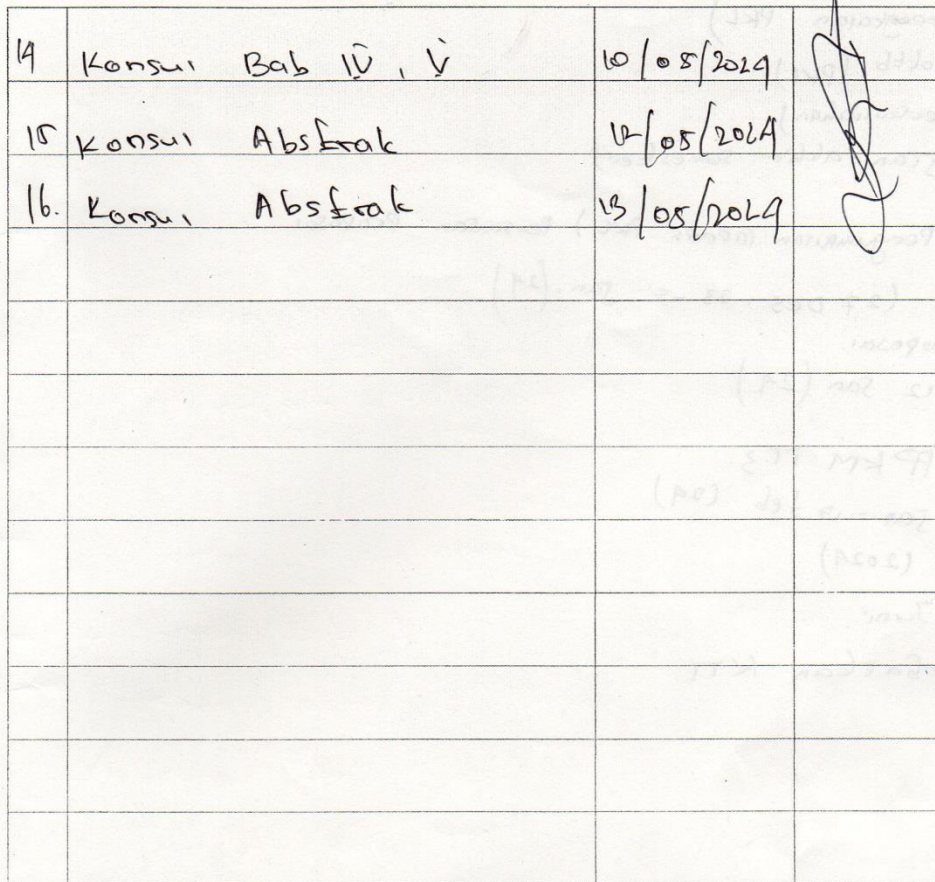 14 Konsul Bab IV, V 10/05/2024
15 Konsul Abstrak 12/05/2024
16. Konsul Abstrak 13/05/2024